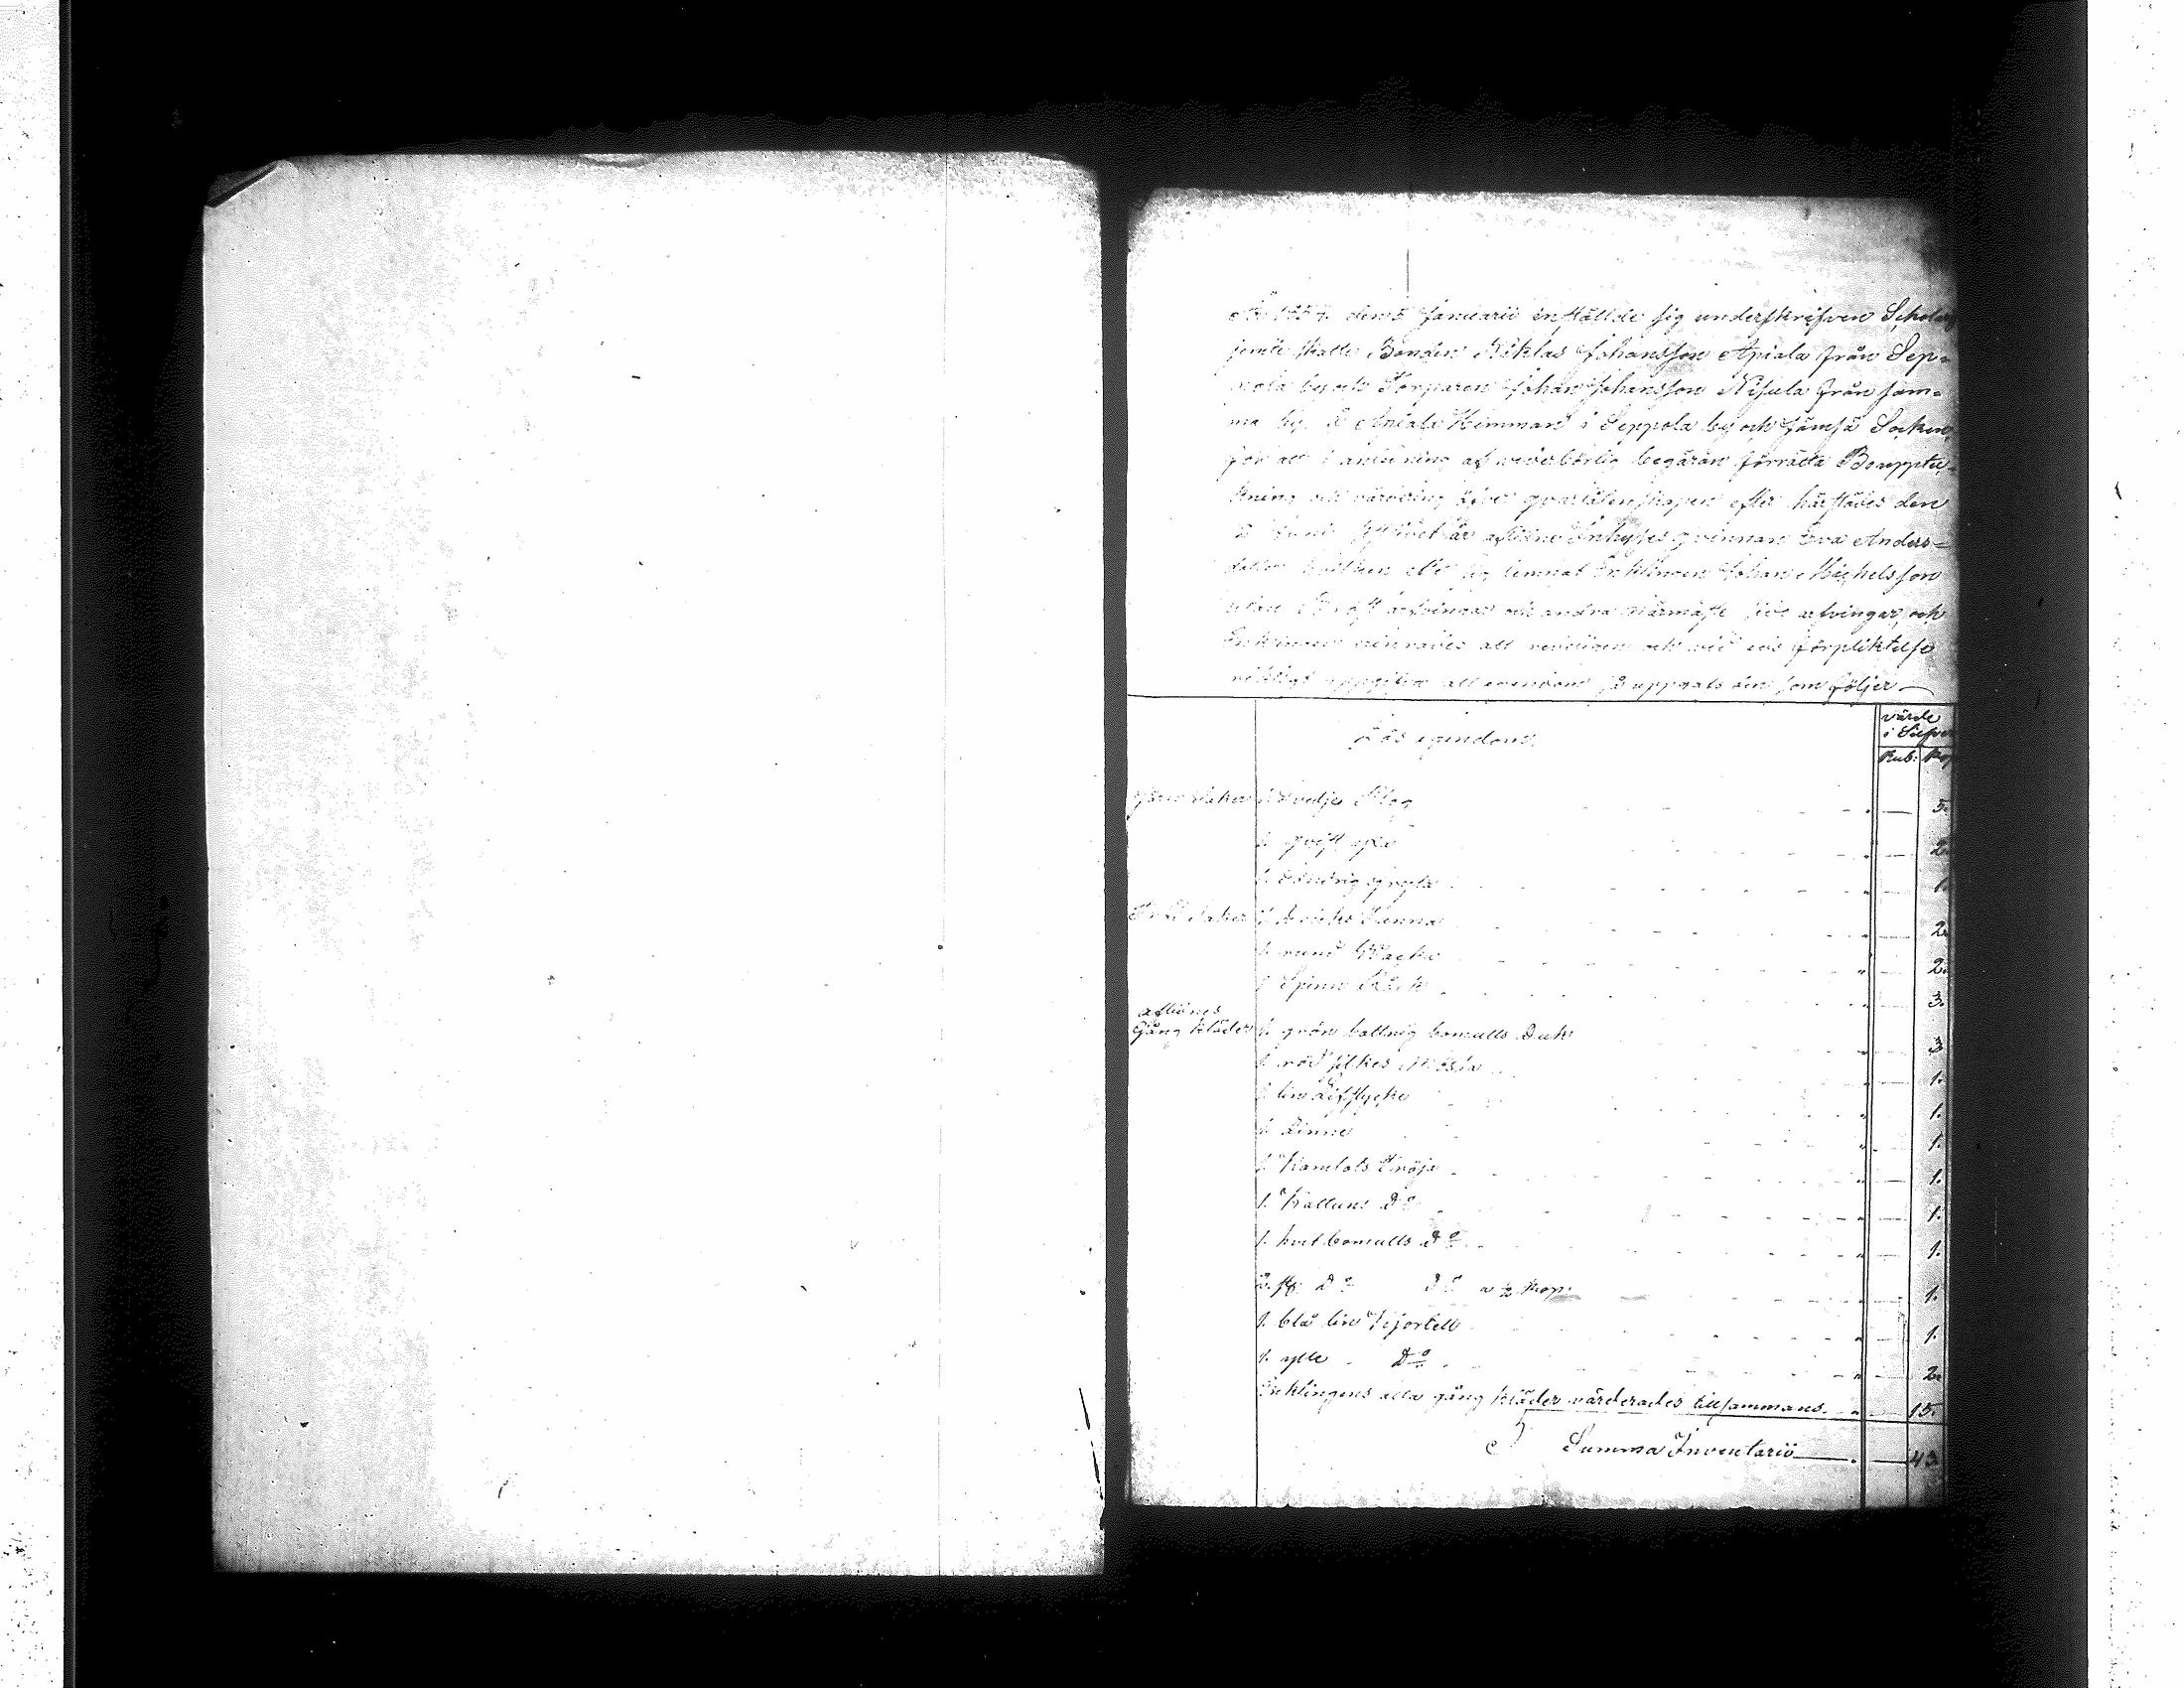 den 5 Januarii inställde sig underskrifven
jemte Bonden Niklas Johansson Apiala från Sep-
pola by och Torparen Johan Johansson Nisula från sam-
ma by, å Apiala Hemman i Seppola by och Jämsä Socken,
för att i anledning af vederbörlig begäran förrätta Bouppteck-
ning och värdering öfver qvarlåtenskapen efter härstädes den
aflidne Inhyses qvinnan Eva Anders-
dotter hvilken efter sig lemnat Enklingen Johan Michelsson
utan Bröst arfvingar och andra närmaste arfvingar, och
Enklingen att redeligen och vid eds förpliktelse
riktigt uppgifva all egendom så uppgafs den som följer
Lös egendom.
värde
i Silfver
Rub: Kop
Järn Saker 1. Plog 5.
1. qvist yxa 2.
1. gryta 1.
Träd Saker 1. Kanna 2.
1. rund 2.
1 Spinn Råck 3.
aflidnes
Gång kläder 1. grön bomulls Duk 3
1. röd silkes Mössa 1.
1 lin Lifstycke 1.
1. Linne 1.
1. Kamlots Tröja 1.
1. Kattuns Do 1.
1. hvit bomulls Do 1.
2. st. Do Do a ½ Kop. 1.
1. blå lin Kjortell 1.
1. ylle Do 2.
Enklingens alla gång kläder värderades tillsammans 15.
Summa Inventarii 43